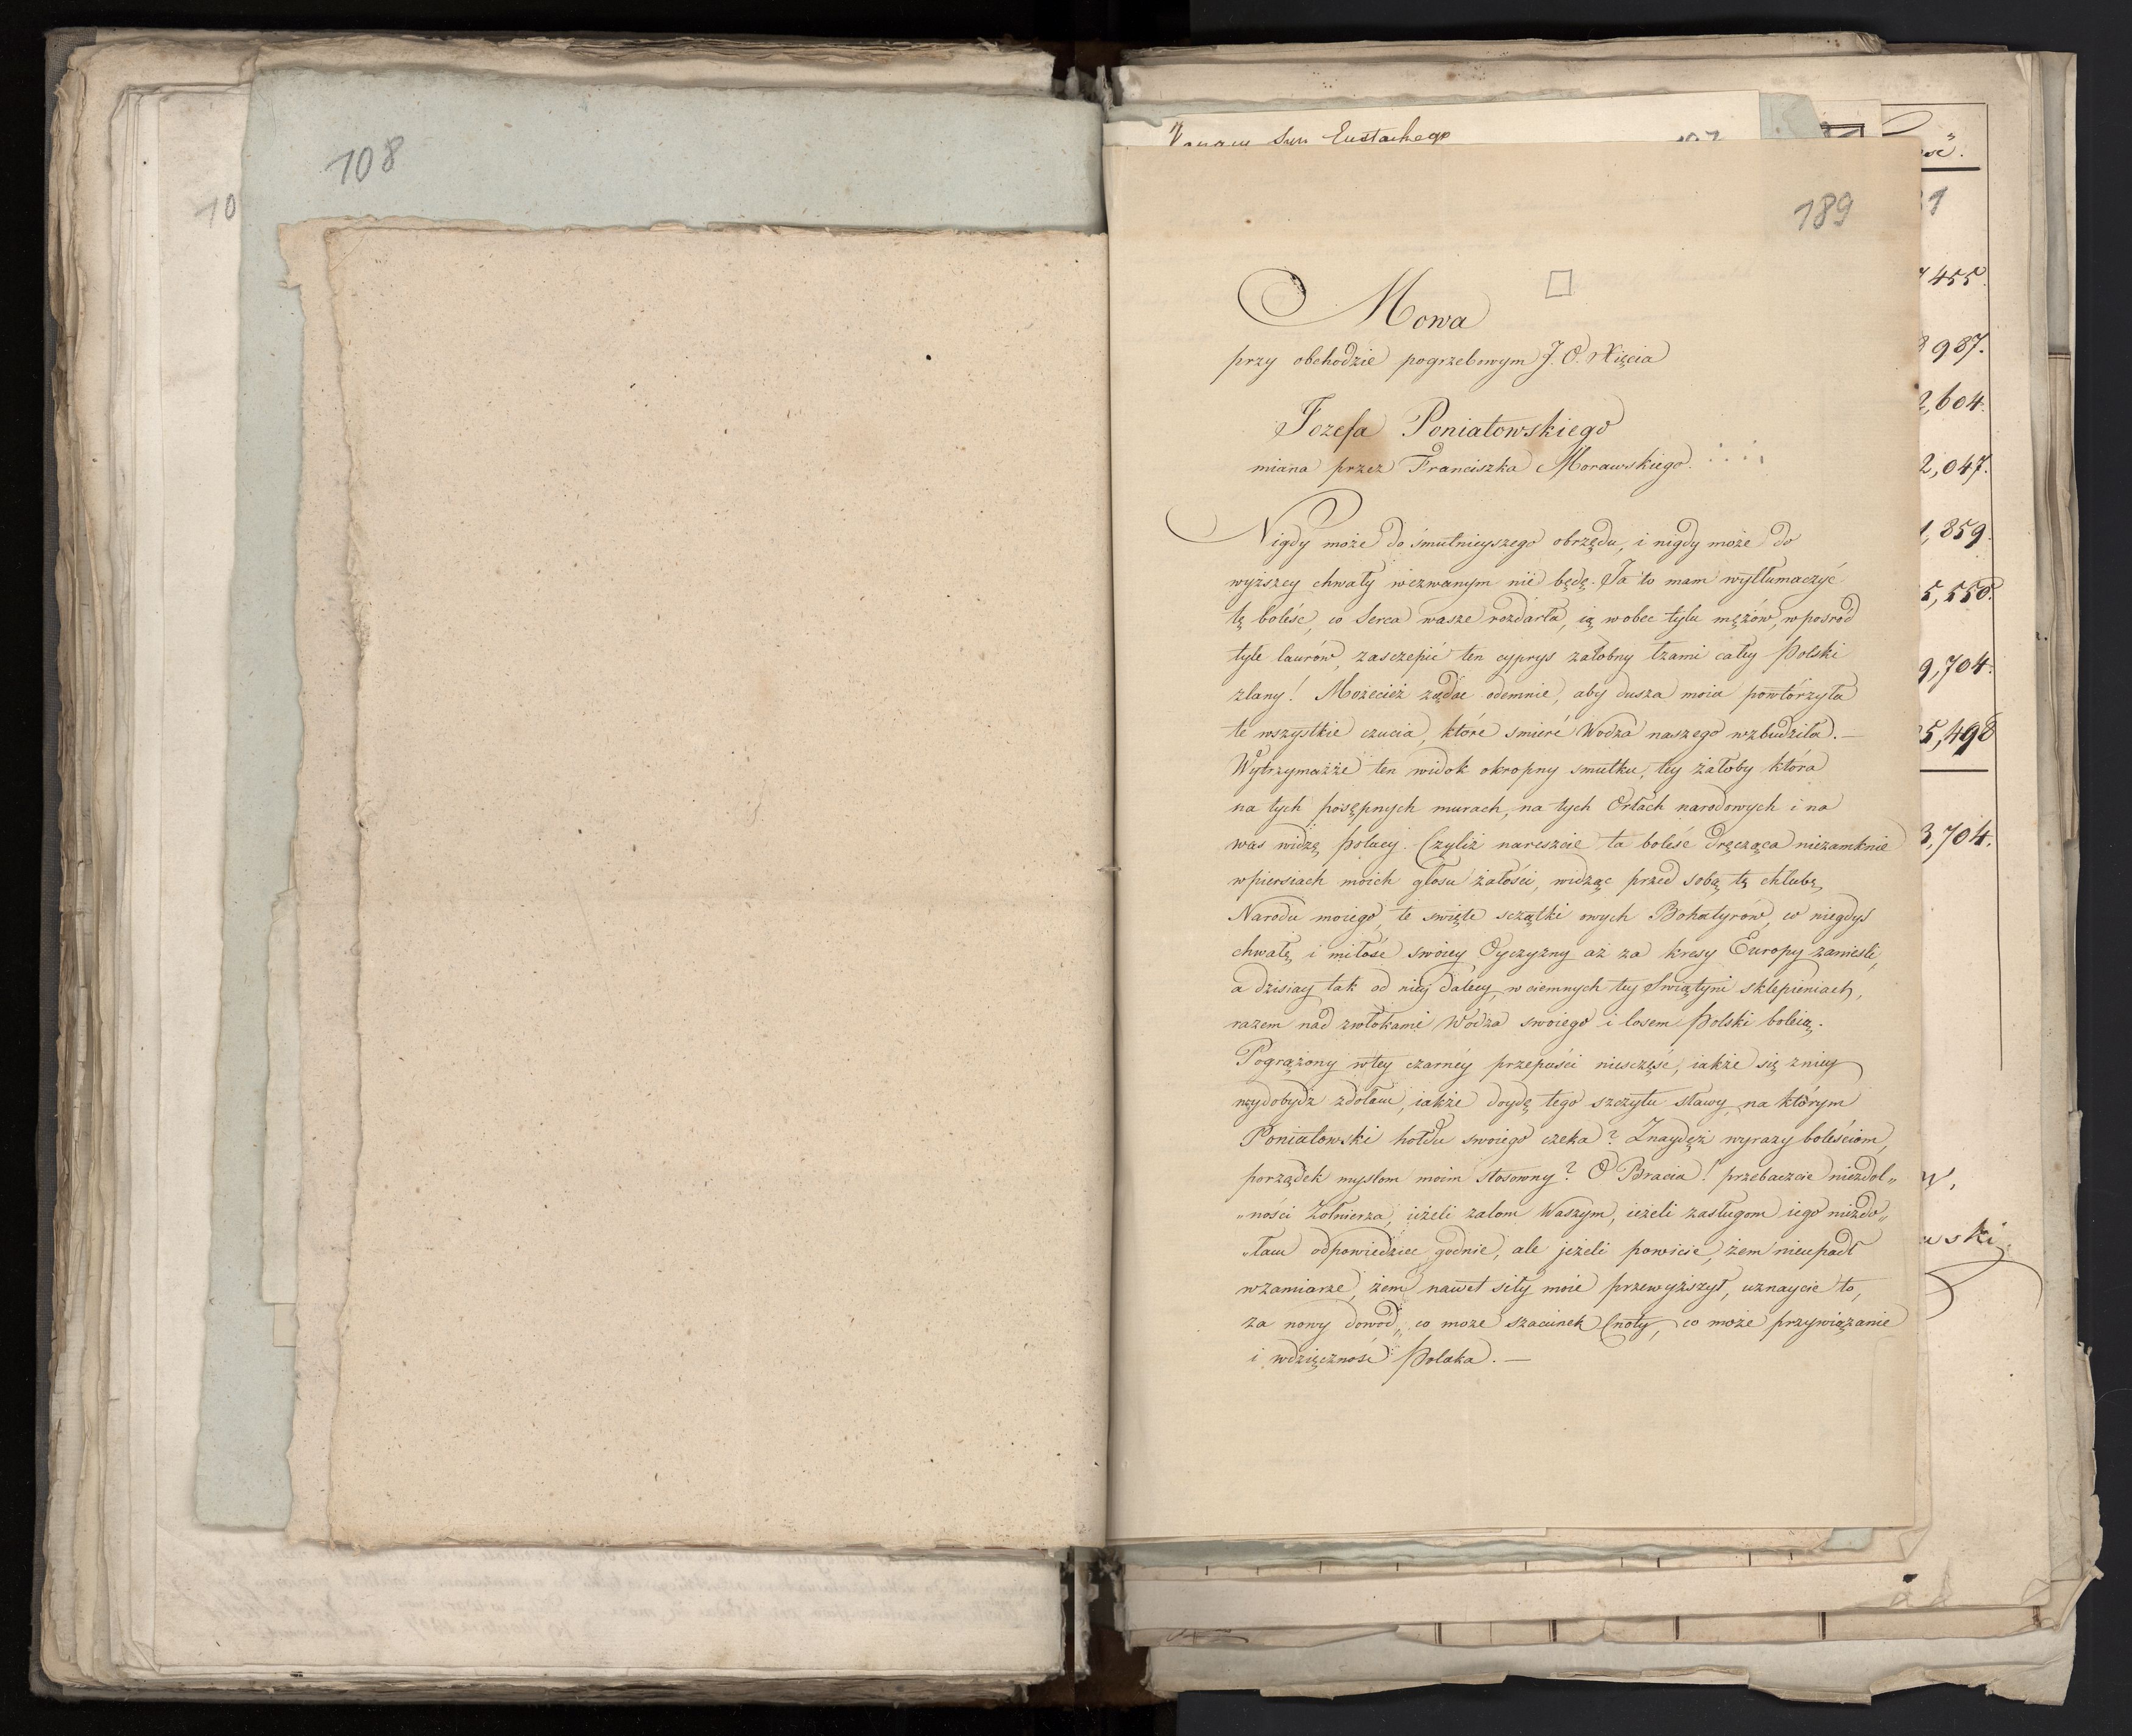 108
10
Syn Eustachego
189
Mowa
przy obchodzie pogrzebowym J. O. Xięcia
Jozefa Poniatowskiego
miana przez Franciszka Morawskiego.
Nigdy może do smutnieyszego obrzędu, i nigdy może do
wyższey chwały wezwanym nie będę. Ja to mam wytłumaczyć
tę boleść, co serca wasze rozdarła, ią wobec tylu mężów, wpośród
tyle laurów, zaszczepić ten cyprys żałobny łzami całey Polski
zlany! Możecież żądać odemnie, aby dusza moia powtórzyła
te wszystkie czucia, które smierć Wodza naszego wzbudziła. —
Wytrzymaźże ten widok okropny smutku, tey żałoby która
na tych posępnych murach, na tych Orłach narodowych i na
was widzę Polacy. Czyliż nareszcie ta boleść dręcząca niezamknie
wpiersiach moich głosu żałości, widząc przed sobą tę chlubę
Narodu moiego, te święte sczątki owych Bohatyrów, co niegdyś
chwałę i miłość swoiey Oyczyzny aż za kresy Europy zanieśli,
a dzisiay tak od niey dalecy, w ciemnych tey Swiątyni sklepieniach,
razem nad zwłokami Wodza swoiego i losem Polski boleią.
Pogrążony wtey czarnéy przepaści niesczęść, iakże się zniey
wydobydź zdołam, iakże doydę tego szczytu sławy, na którym
Poniatowski hołdu swoiego czeka? Znaydęż wyrazy boleściom,
porządek myslom moim stosowny? O Bracia! przebaczcie niezdol„
„ności Żołnierza, ieżeli żalom Waszym, ieżeli zasługom iego niezdo„
„łam odpowiedzieć godnie, ale jeżeli powicie, żem nieupadł
wzamiarze, żem nawet siły moie przewyższył, uznaycie to,
za nowy dowód, co może szacunek Cnoty, co może przywiązanie
i wdzięczność Polaka. —
455.
987.
2,604.
2,047.
1,859.
5,550.
9,704.
5,498
3,704.
w.
wski